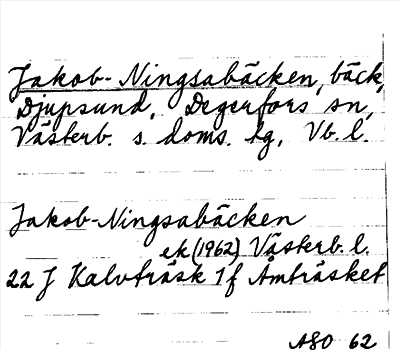 Jakob-Ningsabäcken, bäck,
Djupsund, Degerfors sn,
Västerb. s. doms. lg, Vb. l.
Jakob-Ningsabäcken
ek (1962) Västerb. l.
22 J Kalvträsk 1f Åmträsket
ASO 62